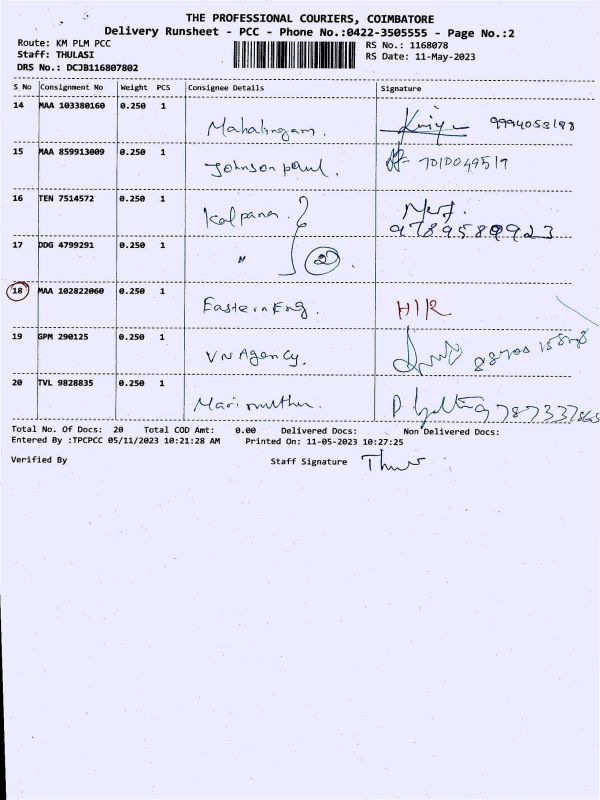 THE PROFESSIONAL COURIERS, COIMBATORE
Delivery Runsheet - PCC - Phone No.:0422-3505555 - Page No.:2
Route: KM PLM PCC
RS No.: 1168078
Staff: THULASI
RS Date: 11-May-2023
DRS No.: DCJB116807802
S No Consignment No Weight PCS Consignee Details Signature
14 MAA 103380160 0.250 1 Mahalingam.
15 MAA 859913009 0.250 1 Johnson paul. 7010049517
16 TEN 7514572 0.250 1 Kalpana. 9789589923
17 DDG 4799291 0.250 1 " 2
18 MAA 102822060 0.250 1 Eastern Eng.
19 GPM 290125 0.250 1 VN Agency.
20 TVL 9828835 0.250 1 Marimuthu.
Total No. Of Docs: 20 Total COD Amt: 0.00 Delivered Docs: Non Delivered Docs:
Entered By :TPCPCC 05/11/2023 10:21:28 AM Printed On: 11-05-2023 10:27:25
Verified By Staff Signature